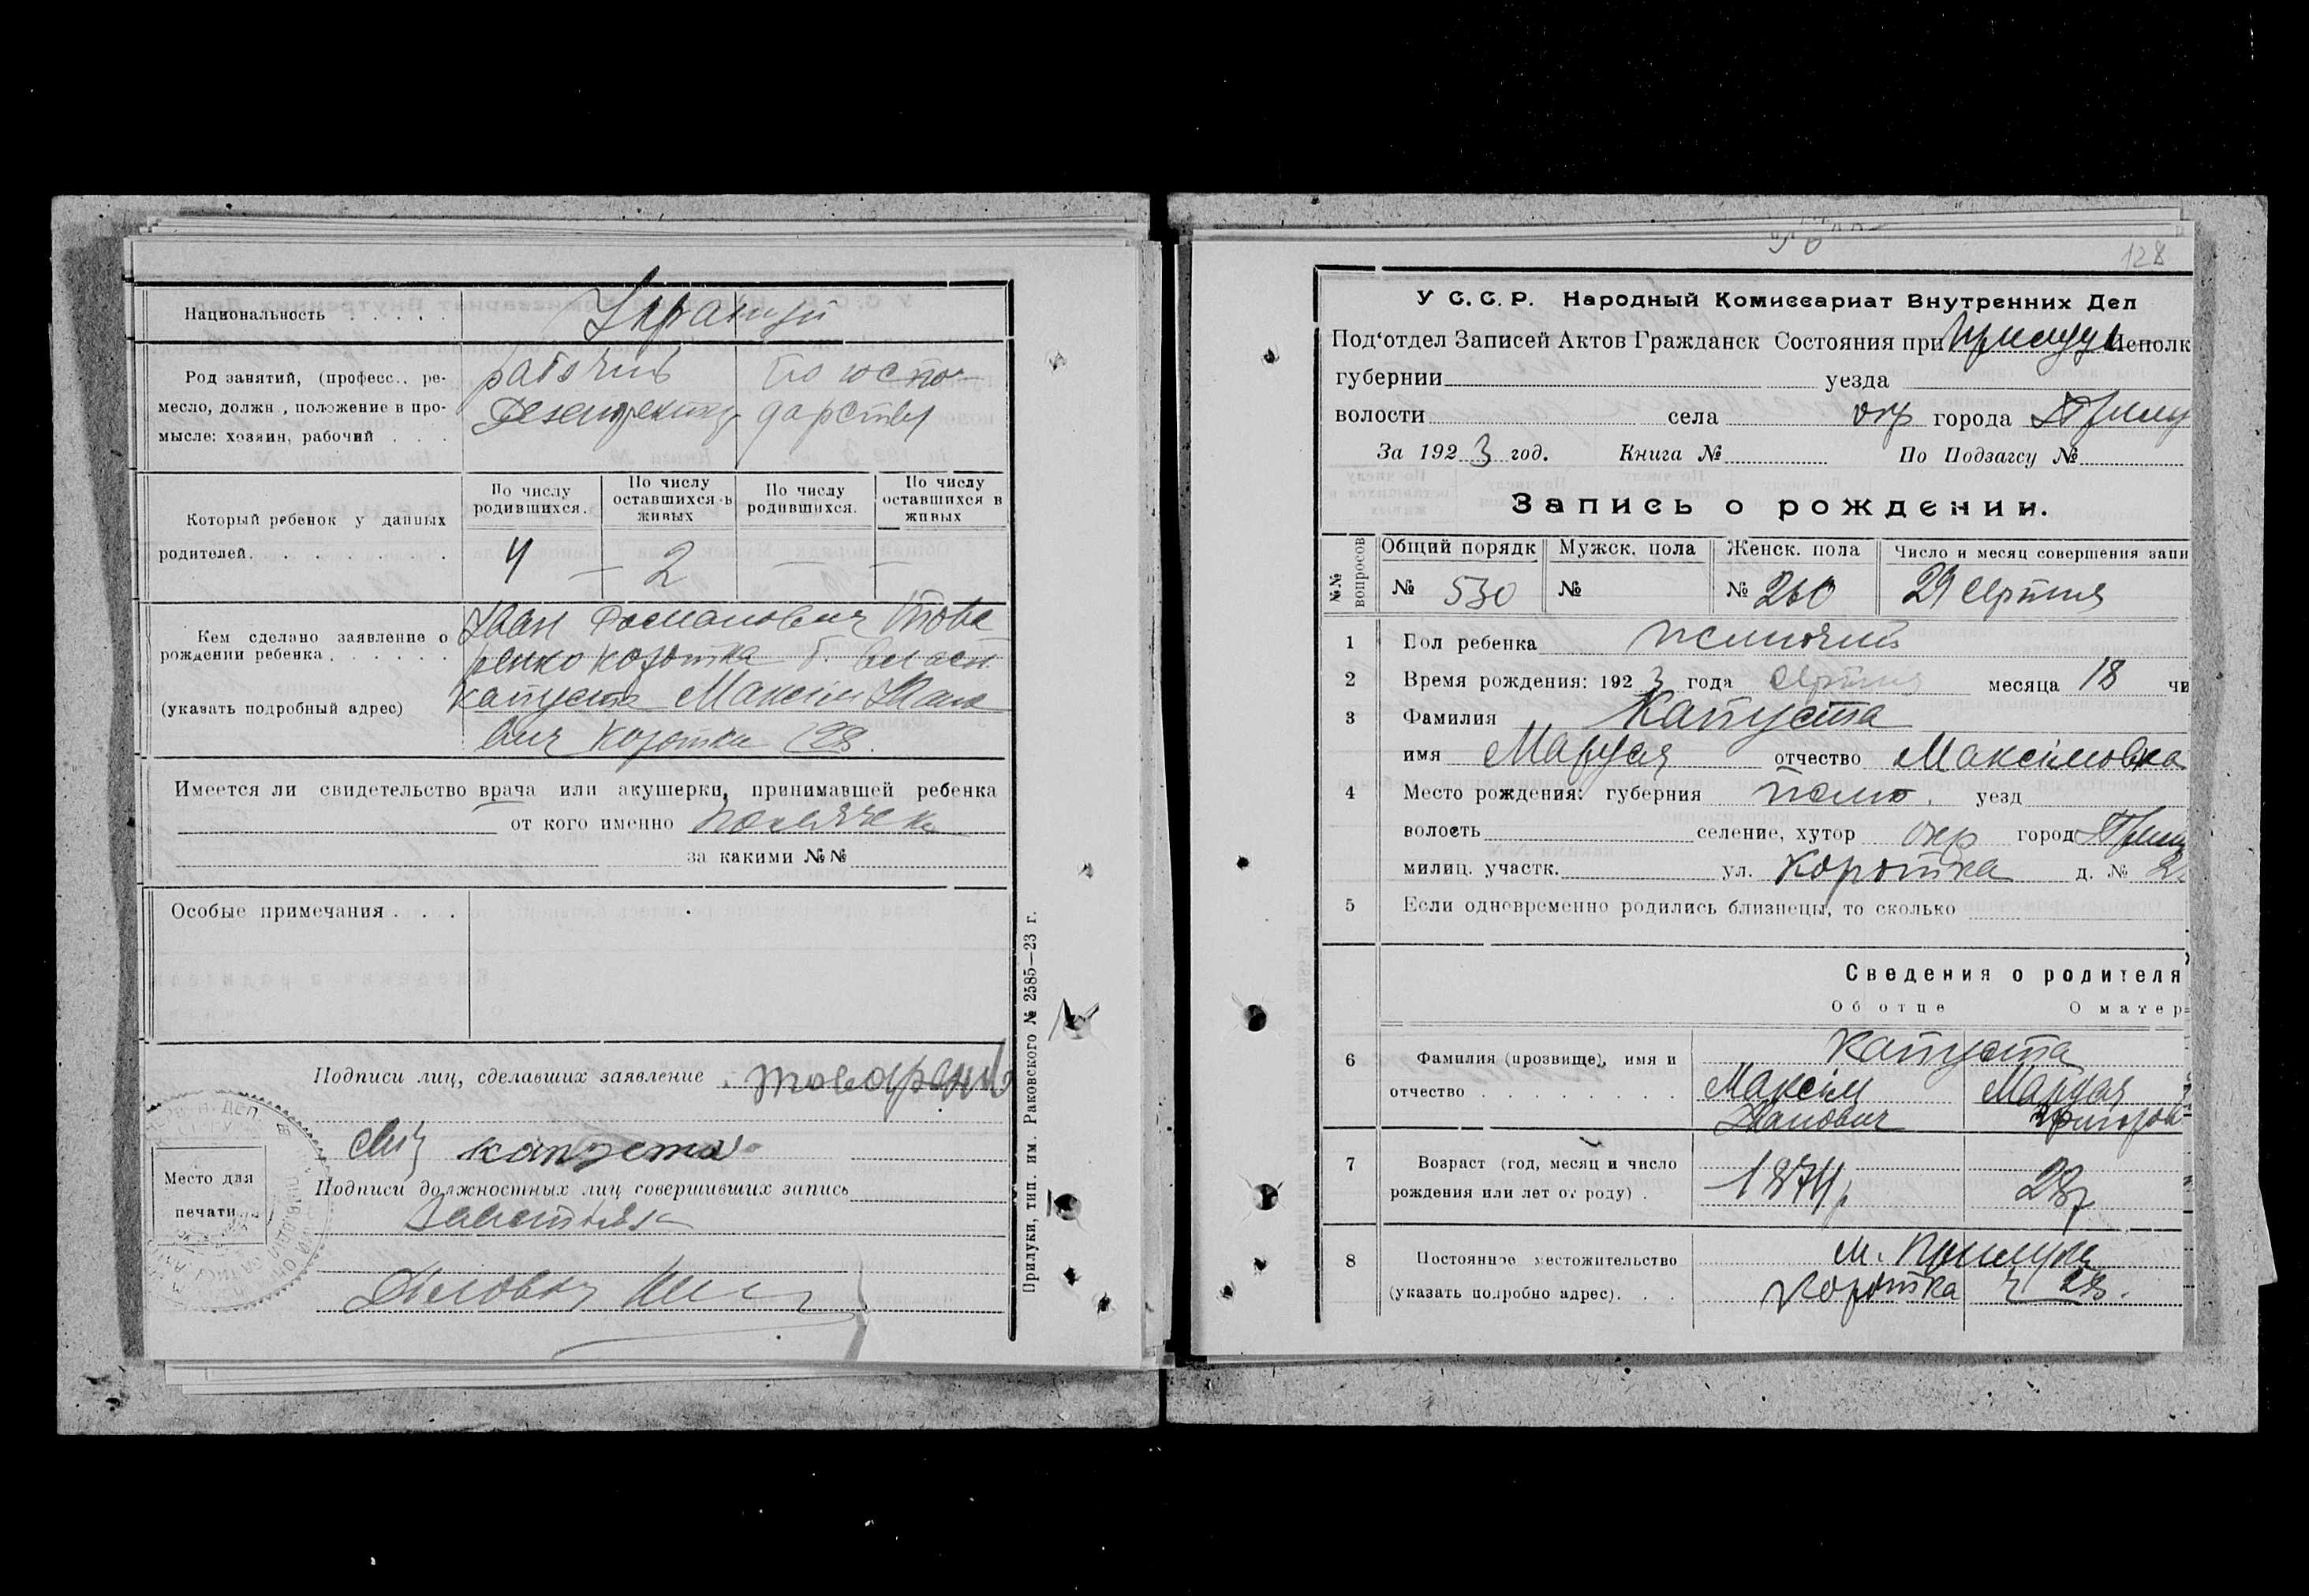 Национальность . . . . . Українці
Род занятий, (професс., ре- робочий По госпо-
месло, должн., положение в про- Дезенфектор дарству
мысле: хозяин, рабочий . . .
По числу родившихся. По числу оставшихся в живых По числу родившихся. По числу оставшихся в живых
Который ребенок у данных
родителей. . . . . . . 4 — 2 — —
Кем сделано заявление о Іван Романович Това
рождении ребенка . . . . . ренко Коротка
(указать подробный адрес) Капуста Максім Івано
вич Коротка 28.
Имеется ли свидетельство врача или акушерки, принимавшей ребенка
от кого именно
за какими №№
Особые примечания . . .
Подписи лиц, сделавших заявление . товаренко
капуста
Подписи должностных лиц совершивших запись
Место для
печати.
Прилуки, тип. им. Раковского № 2585—23 г.
128
У С. С. Р. Народный Комиссариат Внутренних Дел
Под'отдел Записей Актов Гражданск Состояния при Прилуц Исполк
губернии уезда
волости села окр города Прилу
За 1923 год. Книга № По Подзагсу №
Запись о рождении.
№№ вопросов
Общий порядк Мужск. пола Женск. пола Число и месяц совершения запи
№ 530 № № 260 29 серпня
1 Пол ребенка жиночий
2 Время рождения: 1923 года серпня месяца 18 чи
3 Фамилия Капуста
имя Маруся отчество Максімовна
4 Место рождения: губерния Полт. уезд
волость селение, хутор окр город Прилу
милиц. участк. ул. Коротка д. № 2
5 Если одновременно родились близнецы, то сколько
Сведения о родителя
Об отце О матер
6 Фамилия (прозвище), имя и Капуста
отчество . . . . . . . . Максім Маруся
Іванович Григоров
7 Возраст (год, месяц и число
рождения или лет от роду) . 1874 р 28 р
8 Постоянное местожительство м. Прилуки
(указать подробно адрес). . . Коротка ч 28.